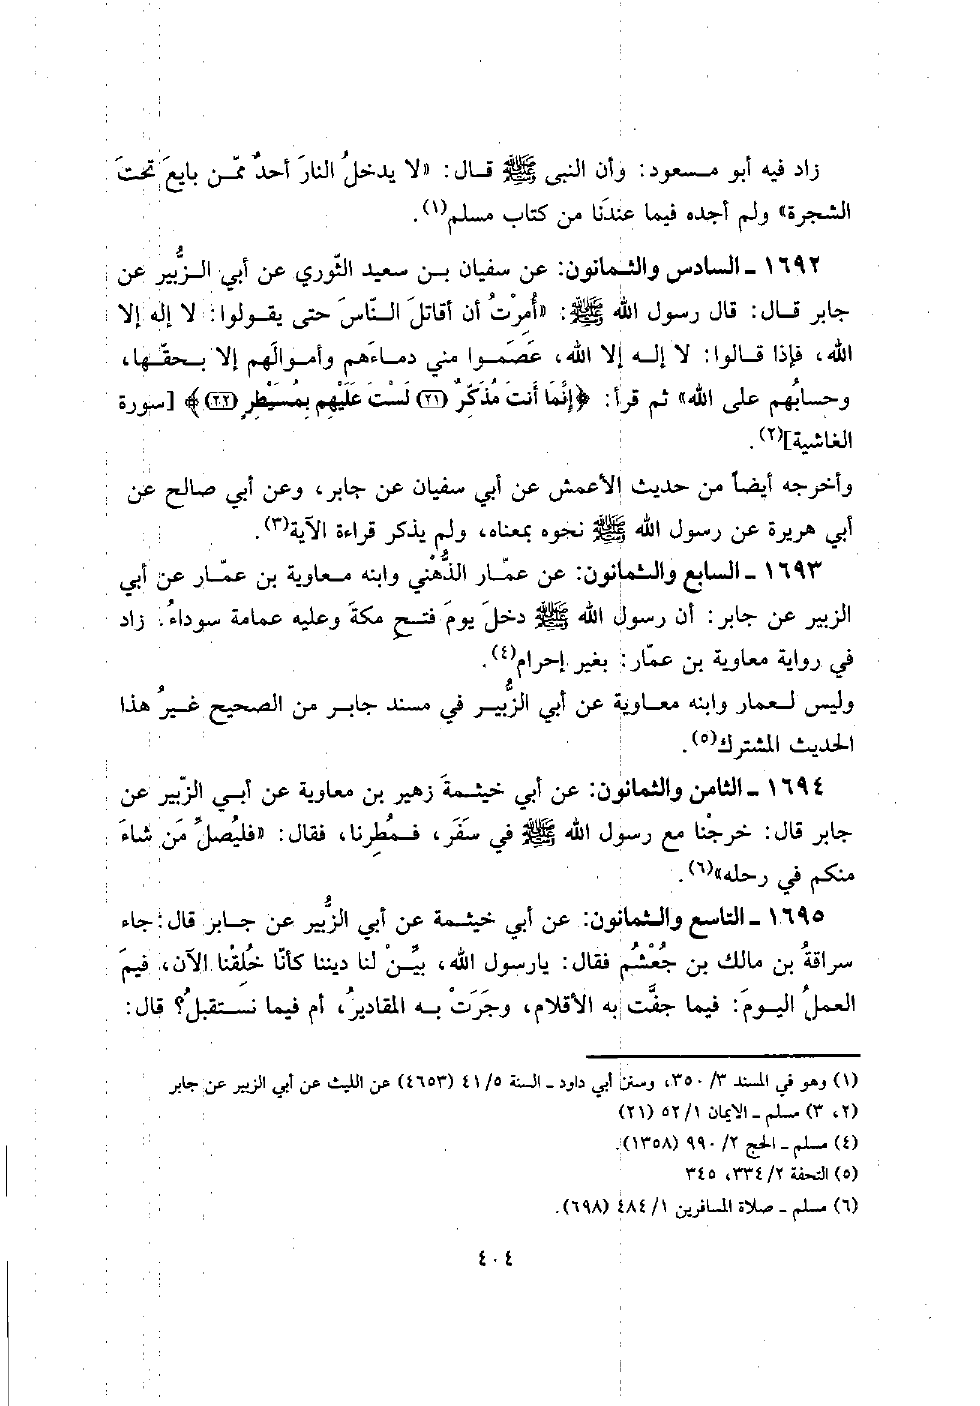 زاد فيه أبو مسعود: وأن النبي ﷺ قال: «لا يدخلُ النارَ أحدٌ ممّن بايعَ تحتَ
الشجرة» ولم أجده فيما عندَنا من كتاب مسلم(١).
١٦٩٢ - السادس والثمانون: عن سفيان بن سعيد الثّوري عن أبي الزُّبير عن
جابر قال: قال رسول الله ﷺ: «أُمِرْتُ أن أقاتلَ النّاسَ حتى يقولوا: لا إله إلا
الله، فإذا قالوا: لا إله إلا الله، عَصَموا مني دماءَهم وأموالَهم إلا بحقّها،
وحسابُهم على الله» ثم قرأ: ﴿إِنَّمَا أَنتَ مُذَكِّرٌ (٢١) لَسْتَ عَلَيْهِم بِمُسَيْطِرٍ (٢٢)﴾ [سورة
الغاشية](٢).
وأخرجه أيضاً من حديث الأعمش عن أبي سفيان عن جابر، وعن أبي صالح عن
أبي هريرة عن رسول الله ﷺ نحوه بمعناه، ولم يذكر قراءة الآية(٣).
١٦٩٣ - السابع والثمانون: عن عمّار الدُّهْني وابنه معاوية بن عمّار عن أبي
الزبير عن جابر: أن رسول الله ﷺ دخلَ يومَ فتحِ مكةَ وعليه عمامة سوداءُ. زاد
في رواية معاوية بن عمّار: بغير إحرام(٤).
وليس لعمار وابنه معاوية عن أبي الزُّبير في مسند جابر من الصحيح غيرُ هذا
الحديث المشترك(٥).
١٦٩٤ - الثامن والثمانون: عن أبي خيثمةَ زهير بن معاوية عن أبي الزّبير عن
جابر قال: خرجْنا مع رسول الله ﷺ في سَفَر، فمُطِرنا، فقال: «فليُصلِّ مَن شاءَ
منكم في رحله»(٦).
١٦٩٥ - التاسع والثمانون: عن أبي خيثمة عن أبي الزُّبير عن جابر قال: جاء
سراقةُ بن مالك بن جُعْشُم فقال: يارسول الله، بيِّنْ لنا ديننا كأنّا خُلِقْنا الآن، فيمَ
العملُ اليومَ: فيما جفَّت به الأقلام، وجَرَتْ به المقاديرُ، أم فيما نستقبلُ؟ قال:
(١) وهو في المسند ٣/ ٣٥٠، وسنن أبي داود - السنة ٥/ ٤١ (٤٦٥٣) عن الليث عن أبي الزبير عن جابر
(٢، ٣) مسلم - الايمان ١/ ٥٢ (٢١)
(٤) مسلم - الحج ٢/ ٩٩٠ (١٣٥٨).
(٥) التحفة ٢/ ٣٣٤، ٣٤٥
(٦) مسلم - صلاة المسافرين ١/ ٤٨٤ (٦٩٨).
٤٠٤